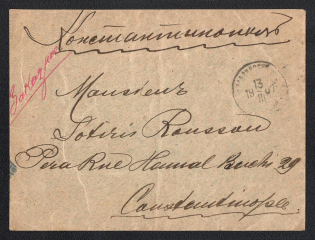 Константинополь
Заказное
Monsieur
Sotiris Rousson
Pera Rue Hamal Bachi 29
Constantinople
13